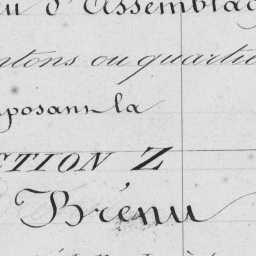 d'Assemblag
ntons ou quartie
posant la
CTION Z
Brénu